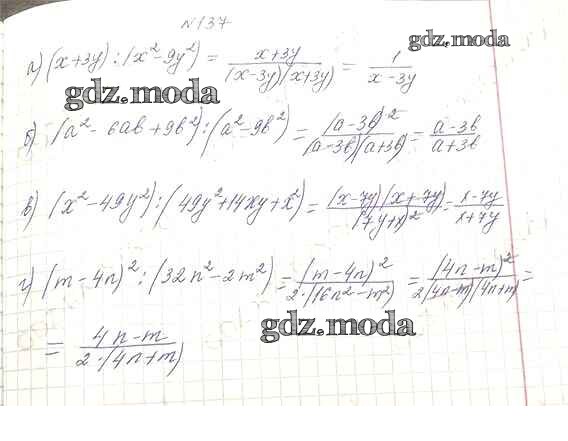 №137
gdz.moda
а) (x+3y) : (x²-9y²) = x+3y / (x-3y)(x+3y) = 1 / x-3y
gdz.moda
б) (a²-6ab+9b²) : (a²-9b²) = (a-3b)² / (a-3b)(a+3b) = a-3b / a+3b
в) (x²-49y²) : (49y²+14xy+x²) = (x-7y)(x+7y) / (7y+x)² = x-7y / x+7y
г) (m-4n)² : (32n²-2m²) = (m-4n)² / 2·(16n²-m²) = (4n-m)² / 2(4n-m)(4n+m) =
gdz.moda
= 4n-m / 2·(4n+m)